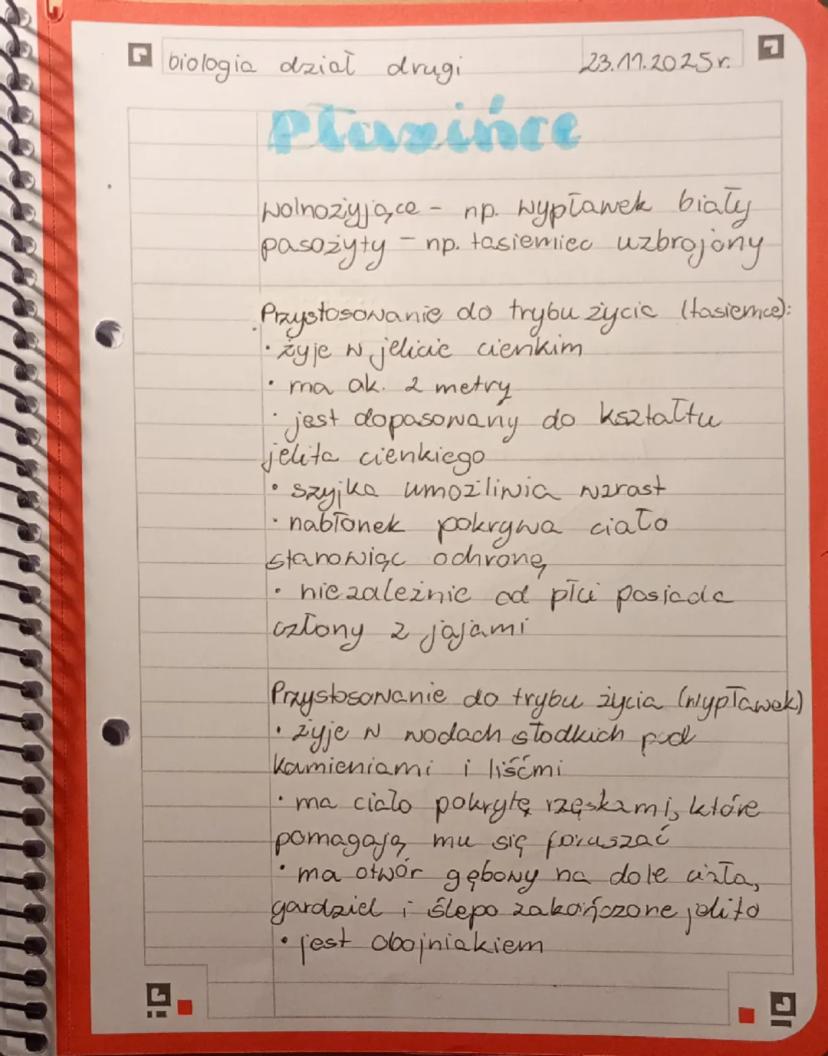 biologia dział drugi 23.11.2025r.
Płazińce
wolnożyjące - np. wypławek biały
pasożyty - np. tasiemiec uzbrojony
Przystosowanie do trybu życia (tasiemce):
• żyje w jelicie cienkim
• ma ok. 2 metry
• jest dopasowany do kształtu
jelita cienkiego
• szyjka umożliwia wzrast
• nabłonek pokrywa ciało
stanowiąc ochronę
• niezależnie od płci posiada
człony z jajami
Przystosowanie do trybu życia (wypławek)
• żyje w wodach słodkich pod
kamieniami i liśćmi
• ma ciało pokrytę rzęskami, które
pomagają mu się poruszać
• ma otwór gębowy na dole ciała,
gardziel i ślepo zakończone jelito
• jest obojniakiem